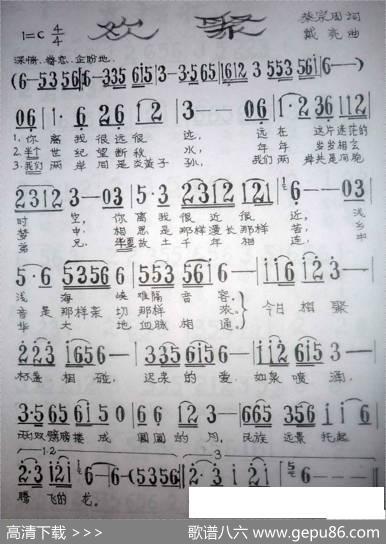 欢聚
1=C 4/4
蔡宗周 词
戴亮 曲
深情、眷恋、企盼地
(6-5356|6-335615|3-53535|1612 3 5553561|
06|1· 6 26 12|3--06|1·2 36 112|
1.你离我很远很远,远在这片迷茫的
2.半个世纪望断秋水,年年
3.我们两岸同是炎黄子孙,我们两岸共是同胞
2312 3-03|5·3 2321 21|6--03|
时空,你离我很近很近,浅
梦中,相思是那样漫长那样苦,乡
弟兄,华夏故土千年相连,中
5·6 5356|553 5616-|116 123-|
浅海峡难隔音容。
音是那样亲切那样浓。
华大地血脉相通
今日相聚
2223 1656-|335 6156-|112 6353-|
杯盏相碰,迟来的爱如泉喷涌,
3·565 6150|66 123-|665 356 116|
双双臂膀搂成圆圆的月,民族远景托起
2·3 212|6-6-(5356:|2·3 1 21|6---||
腾飞的龙。
高清下载 >>>
歌谱八六 www.gepu86.com